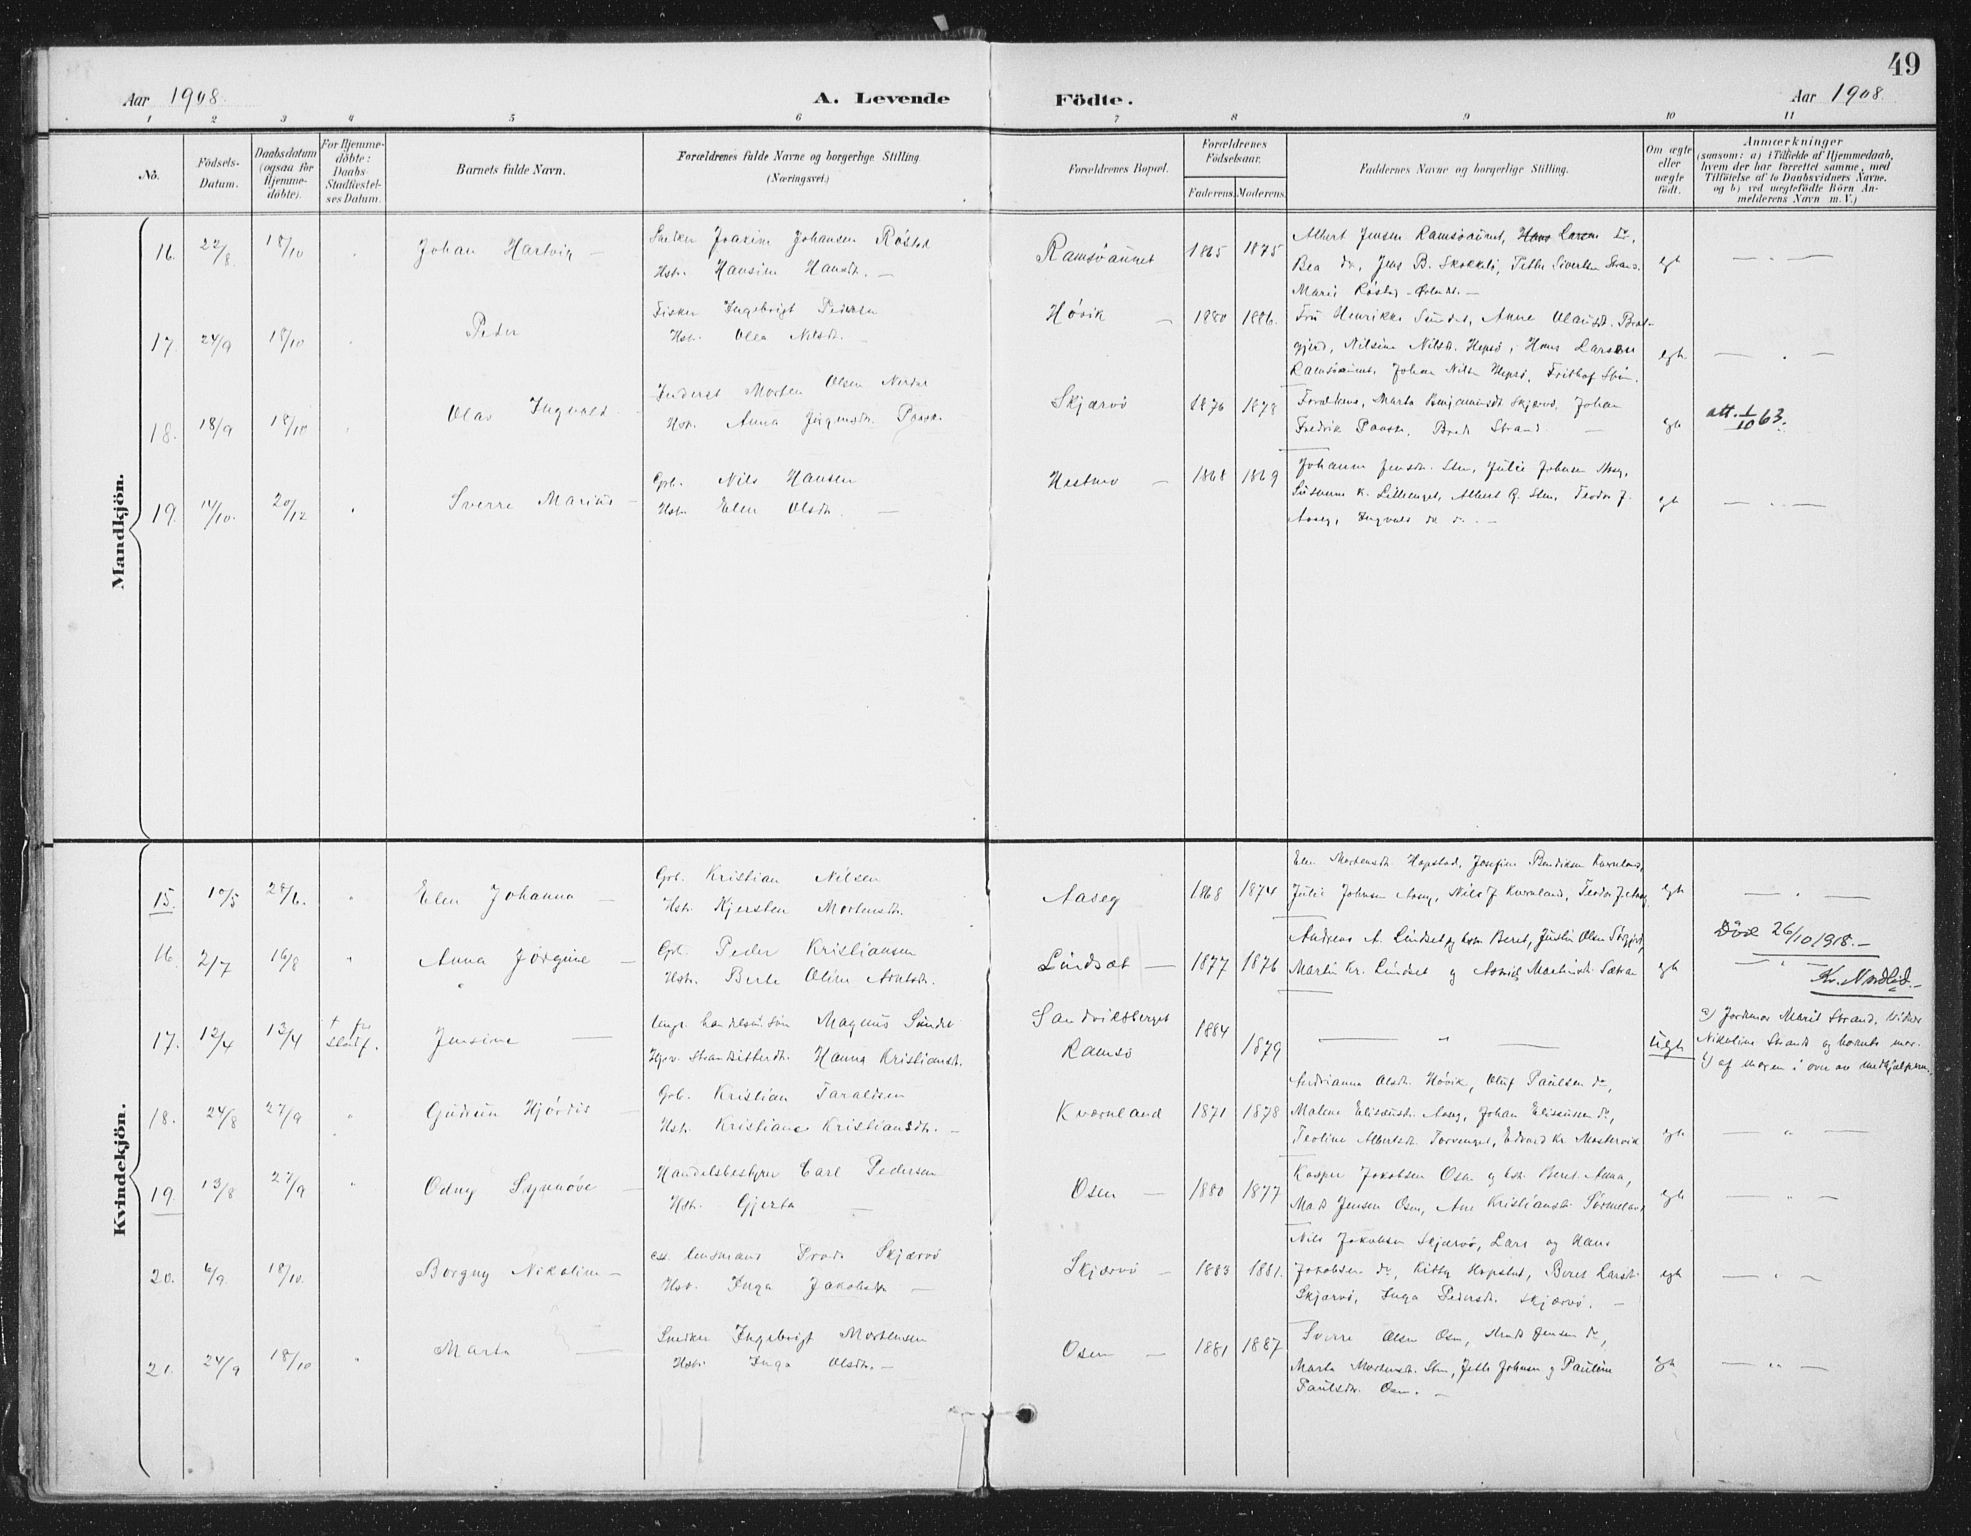 49
Aar 1908.
A. Levende Födte.
Aar 1908.
1 2 3 4 5 6 7 8 9 10 11
No.
Födsels-
Datum.
Daabsdatum
(ogsaa for
Hjemme-
döbte).
For Hjemme-
döbte:
Daabs-
Stadfæstel-
ses Datum.
Barnets fulde Navn.
Forældrenes fulde Navne og borgerlige Stilling.
(Næringsvei.)
Forældrenes Bopæl.
Forældrenes
Födselsaar.
Faderens. Moderens.
Faddernes Navne og borgerlige Stilling.
Om ægte
eller
uægte
födt.
Anmærkninger
(saasom: a) i Tilfælde af Hjemmedaab,
hvem der har forrettet samme, med
Tilföielse af to Daabsvidners Navne,
og b) ved uægtefödte Börn An-
melderens Navn m. V.)
Mandkjön.
16. 22/8. 18/10 Johan Hartvig —
Snekker Joakim Johansen Røstad
Hst. Hansine Hansdt. —
Ramsøaunet 1865 1875
Albert Jensen Ramsøaunet, Hans Larsen do,
Bea do, Jens B. Skokkelö, Sivertsen Strand.
Marie Røstad
egt
17. 24/9 18/10 Peder
Fisker Ingebrigt Pedersen
Hst. Olea Nilsdt. —
Høvik — 1880 1886.
Fru Henrikke Sundet, Anne Olausdt.
Nilsine Nilsdt. Hepsø, Hans Larsen
Ramsøaunet, Johan Nilsen Hepsø,
egt.
18. 18/9 18/10 Olav Ingvald
Morten Olsen
Hst. Anna Jørgensdt.
Skjærvö 1876 1878
Forældrene, Marta Benjaminsdt Skjærvö, Johan
Fredrik Strand —
egt
att. 1/10 63.
19. 14/10. 20/12 Sverre Marius —
Grb. Nils Hansen
Hst. Elen Olsdt. —
Hestmo — 1868 1869
Johanna Jensdt. Sten, Julie Johnsen Aaseg,
Lillenget, Albert Sten, Teodor J.
Aaseg, Ingvald do do. —
egt
Kvindekjön.
15. 10/5 28/6. Elen Johanna —
Grb. Kristian Nilsen
Hst. Kjersten Mortensdt.
Aaseg 1868 1874
Elen Mortensdt. Hopstad, Josefine Bendiksen Kvernland,
Julie Johnsen Aaseg, Nils J Kvernland, Teodor J. Aaseg
egt
16. 2/7 16/8 Anna Jørgine —
Grb. Peder Kristiansen
Hst. Berte Oline Arntsdt.
Lindsæt — 1877 1876
Andreas A. Lindset og hst. Beret, Justin Olsen
Martin Kr. Lindset og Astrid Martinsdt. Sætran
egt
Död 26/10 1918. —
Kr. Nordlid. —
17. 12/4 13/4 stadf. Jensine —
Ungk. handelsm. søn Magnus Sundet
Hanna Kristiansdt.
Sandviksberget
Ramsö
1884 1879
uegt
a) Jordmor Marit Strand, vidner
Nikoline Strand og barnets mor.
18. 24/8 27/9 Gudrun Hjördis —
Grb. Kristian Taraldsen
Hst. Kristiane Kristiansdt. —
Kvernland 1871 1878
Andrianna Olsdt. Høvik, Oluf Paulsen do,
Malene Eliseusdt. Aaseg, Johan Eliseusen do,
Teoline Albertsdt. Torvenget, Edvard Kr. Mastervik
egt
19. 13/8 27/9 Odny Synnøve —
Handelsbestyrer Carl Pedersen
Hst. Gjerta —
Osen — 1880 1877
Kasper Jakobsen Osen og hst. Beret Anna,
Mads Jensen Osen, Ane Kristiansdt. Sörmeland
egt
20. 6/9. 18/10. Borgny Nikoline —
ass. lensmand Skjærvö
Hst. Inga Jakobsdt. —
Skjærvö — 1883 1881.
Nils Jakobsen Skjærvö, Lars og Hans
Jakobsen do, Kitty Hopstad, Beret Larsdt.
Skjærvö, Inga Pedersdt. Skjærvö. —
egt
21. 24/9 18/10 Marta —
Snekker Ingebrigt Mortensen
Hst. Inga Olsdt. —
Osen — 1881 1887
Sverre Olsen Osen, Mads Jensen do,
Marta Mortensdt. Sten, Johnsen og Pauline
Paulsdt. Osen. —
egt.